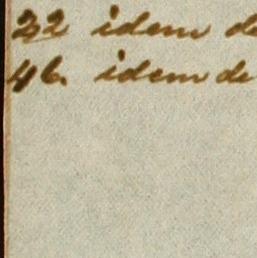 22 idem de
46. idem de